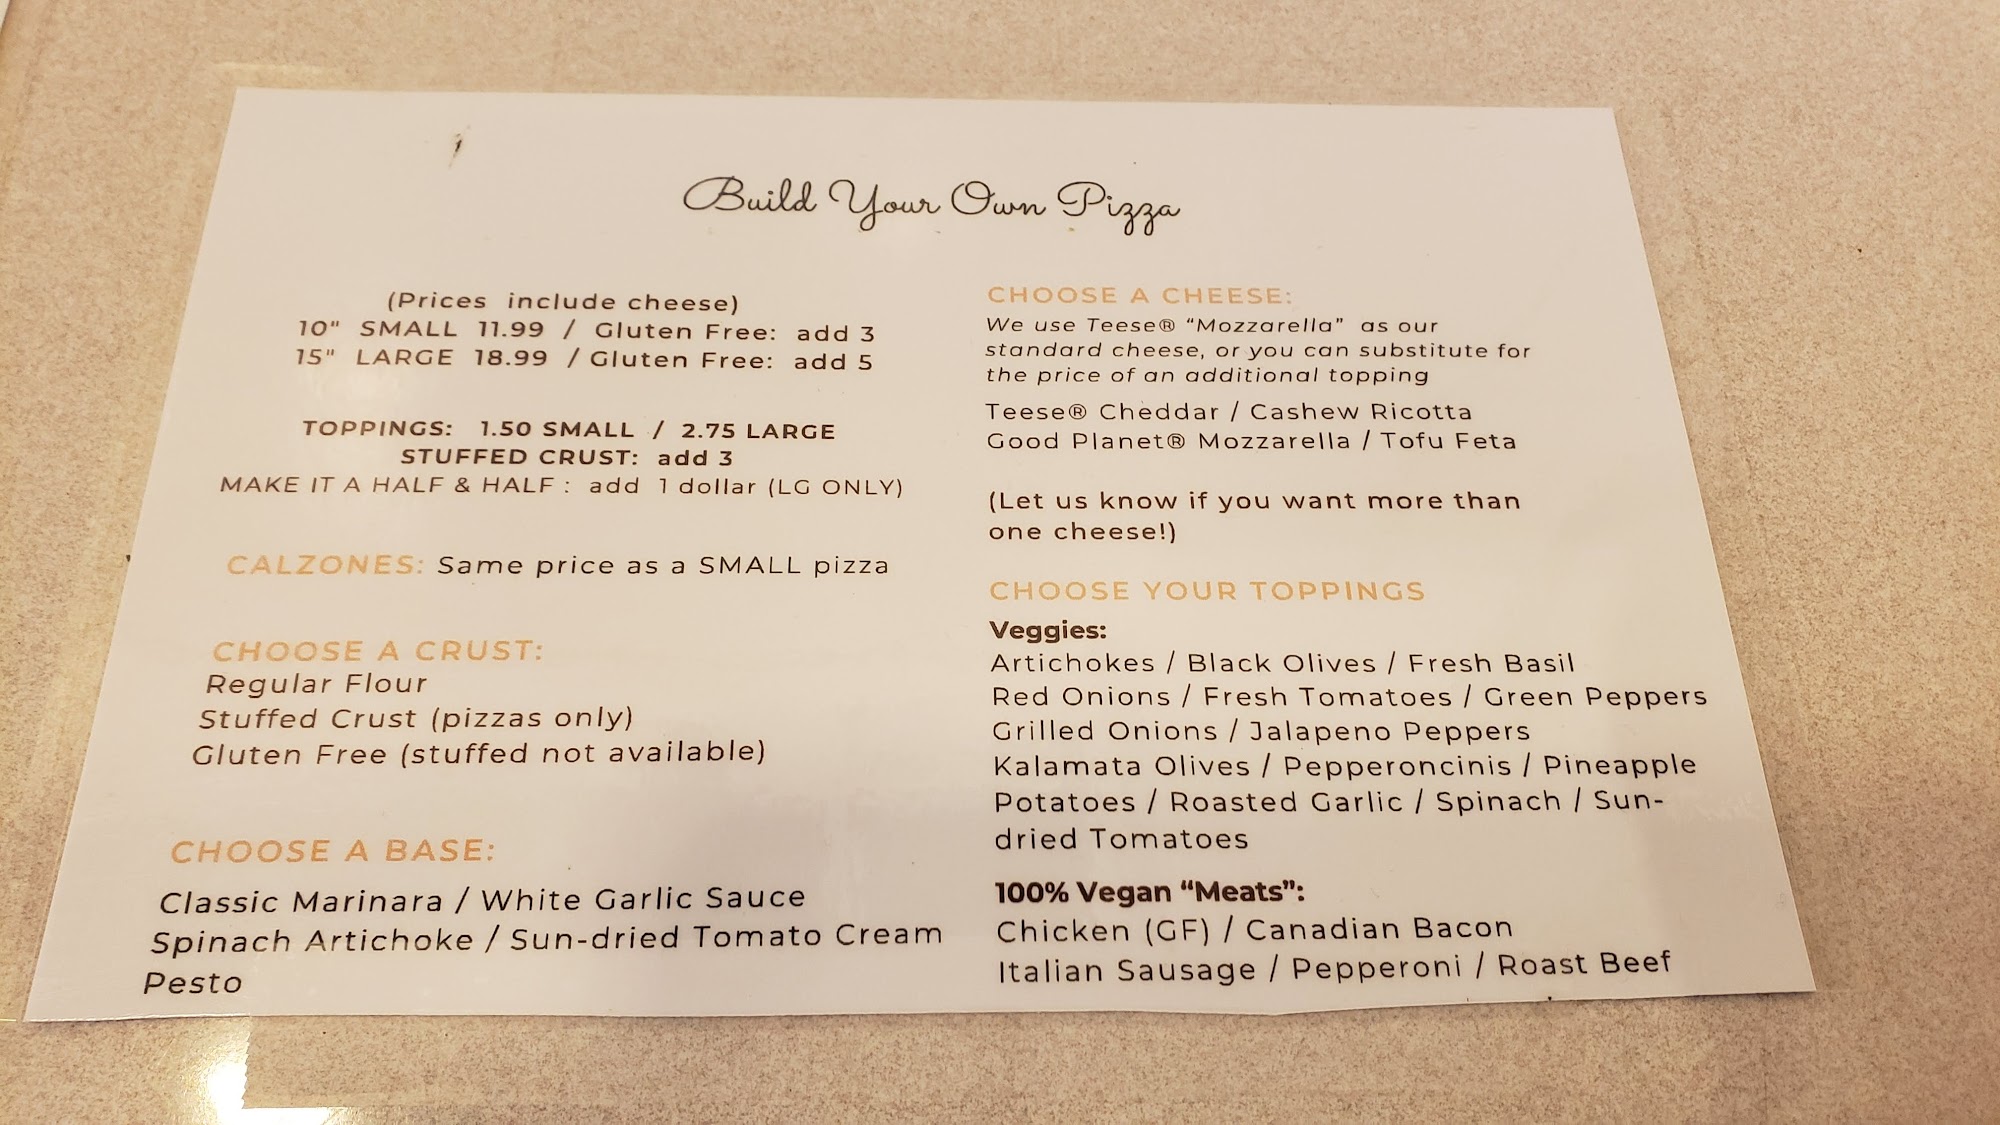 Build Your Own Pizza
(Prices include cheese)
10" SMALL 11.99 / Gluten Free: add 3
15" LARGE 18.99 / Gluten Free: add 5
TOPPINGS: 1.50 SMALL / 2.75 LARGE
STUFFED CRUST: add 3
MAKE IT A HALF & HALF : add 1 dollar (LG ONLY)
CALZONES: Same price as a SMALL pizza
CHOOSE A CRUST:
Regular Flour
Stuffed Crust (pizzas only)
Gluten Free (stuffed not available)
CHOOSE A BASE:
Classic Marinara / White Garlic Sauce
Spinach Artichoke / Sun-dried Tomato Cream
Pesto
CHOOSE A CHEESE:
We use Teese® “Mozzarella” as our
standard cheese, or you can substitute for
the price of an additional topping
Teese® Cheddar / Cashew Ricotta
Good Planet® Mozzarella / Tofu Feta
(Let us know if you want more than
one cheese!)
CHOOSE YOUR TOPPINGS
Veggies:
Artichokes / Black Olives / Fresh Basil
Red Onions / Fresh Tomatoes / Green Peppers
Grilled Onions / Jalapeno Peppers
Kalamata Olives / Pepperoncinis / Pineapple
Potatoes / Roasted Garlic / Spinach / Sun-
dried Tomatoes
100% Vegan “Meats”:
Chicken (GF) / Canadian Bacon
Italian Sausage / Pepperoni / Roast Beef